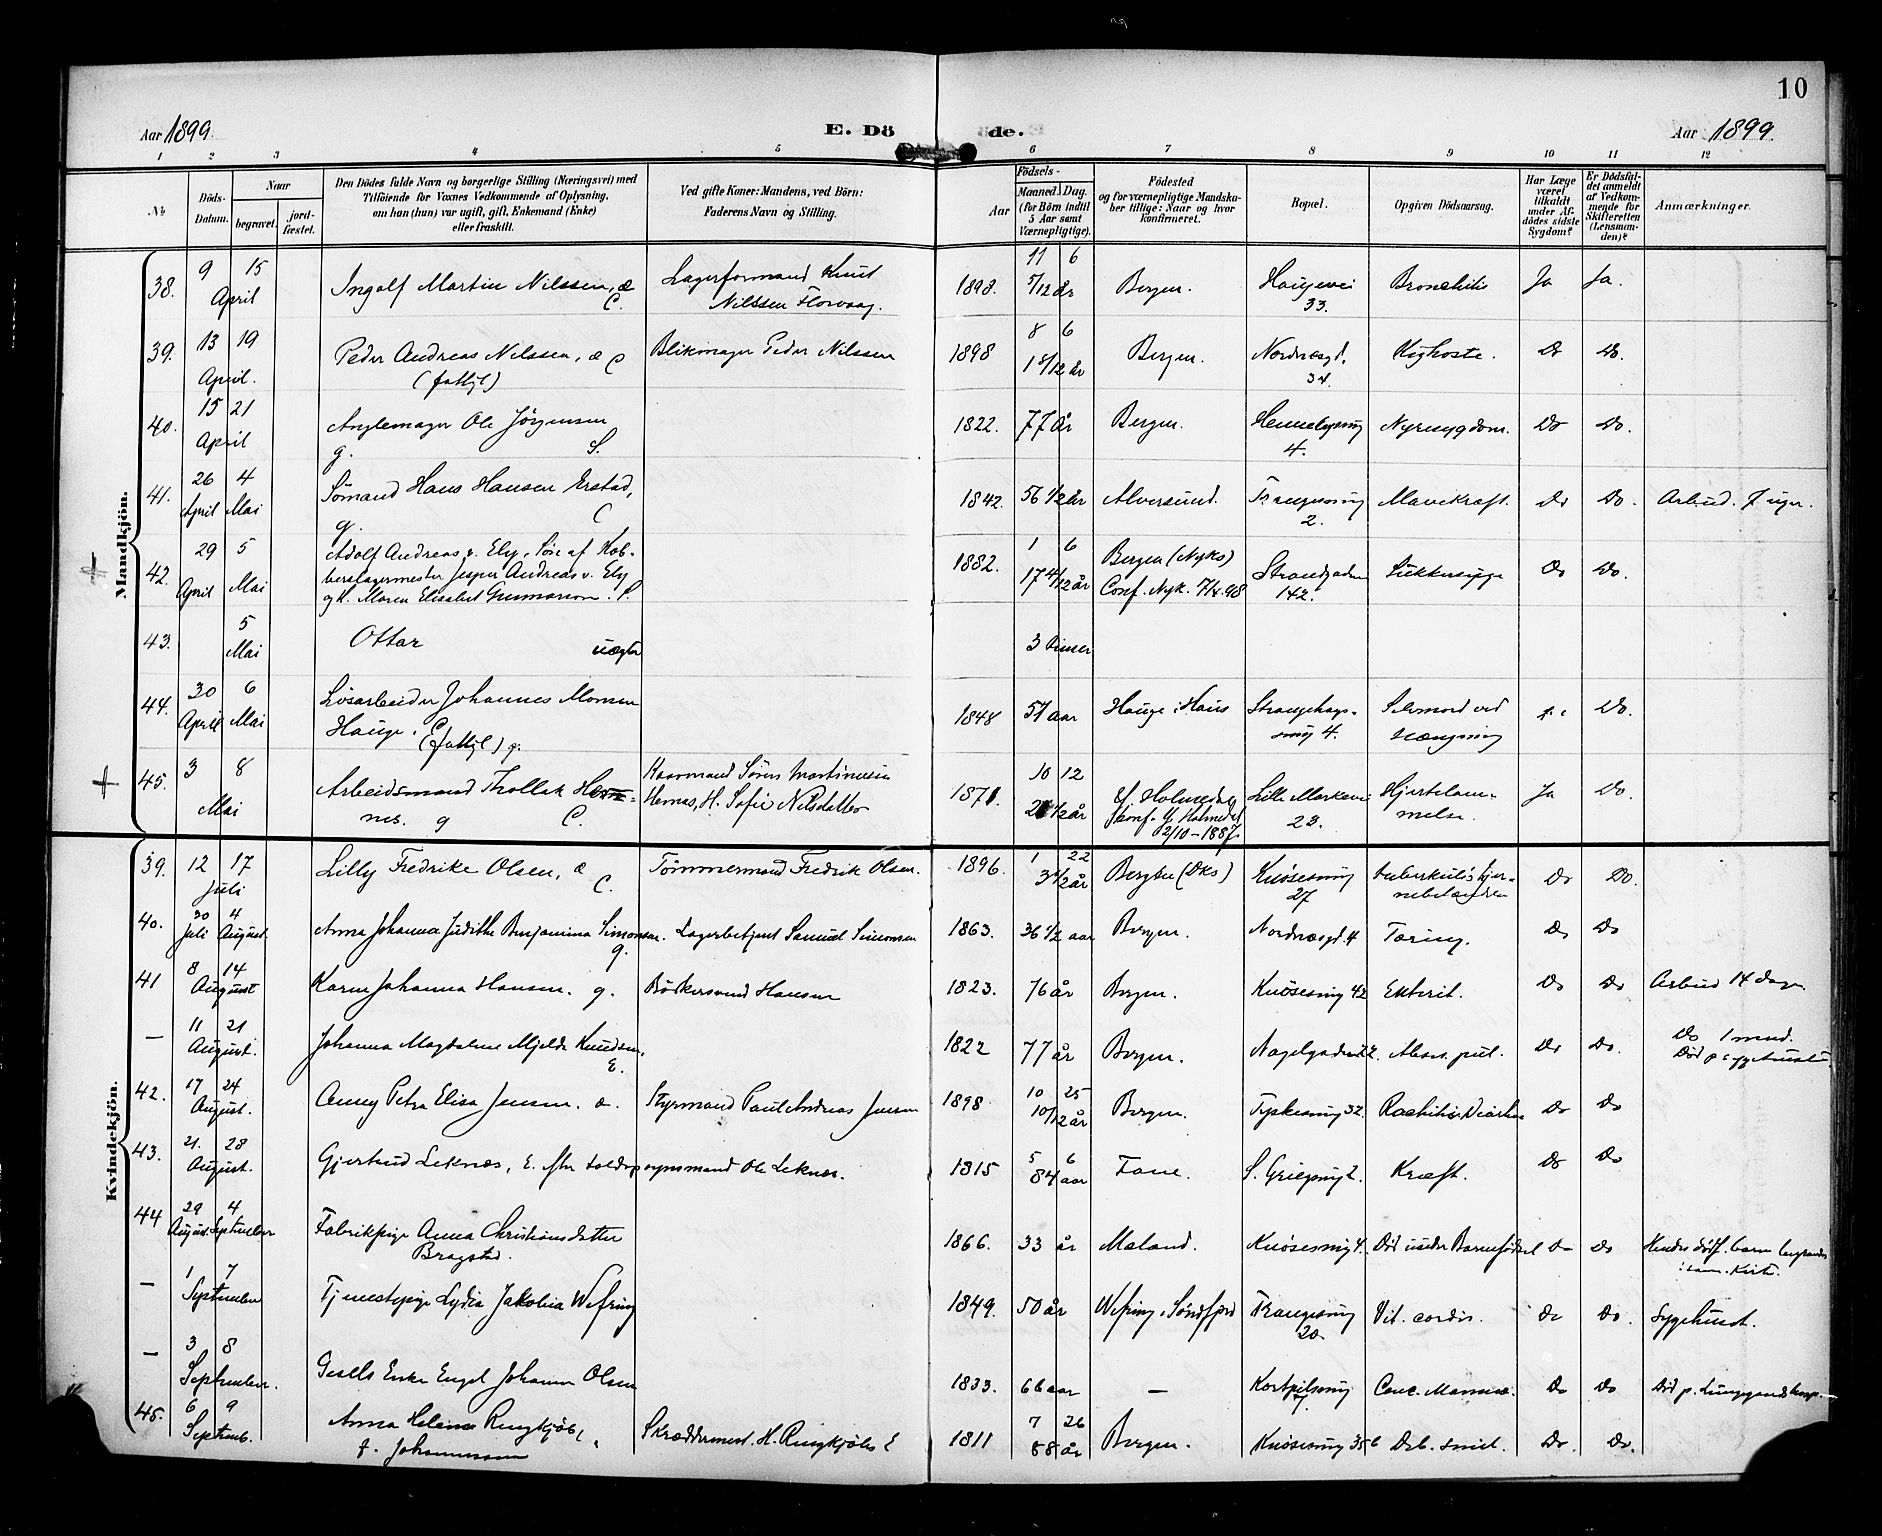 10
Aar 1899.
E. Dö
de.
Aar 1899.
1 2 3 4 5 6 7 8 9 10 11 12
No
Döds-Datum.
Naar
begravet.
jord-fæstet.
Den Dödes fulde Navn og borgerlige Stilling (Næringsvei) med
Tilföiende for Voxnes Vedkommende af Oplysning,
om han (hun) var ugift, gift, Enkemand (Enke)
eller fraskilt.
Ved gifte Koner: Mandens, ved Börn:
Faderens Navn og Stilling.
Födsels-
Aar
Maaned. Dag.
(for Börn indtil
5 Aar samt
Værnepligtige).
Födested
og for værnepligtige Mandska-
ber tillige: Naar og hvor
konfirmeret.
Bopæl.
Opgiven Dödsaarsag.
Har Læge
været
tilkaldt
under Af-
dödes sidste
Sygdom?
Er Dödsfal-
det anmeldt
af Vedkom-
mende for
Skifteretten
(Lensman-
den)?
Anmærkninger.
Mandkjön.
38. 9 15 April Ingolf Martin Nilssen, æ C. Lagerformand Knut Nilssen Florvaag. 1898. 11 6 5/12 år Bergen. Haugevei 33. Bronchitis Ja Ja.
39. 13 19 April. Peder Andreas Nilssen, æ C (fattigl) Blikmager Peder Nilssen 1898 8 6 1 8/12 år Bergen. Nordnæsgd. 34. Kighoste. Do Do.
40. 15 21 April Anglemager Ole Jörgensen g. S. 1822. 77 år Bergen. 4. Nyresygdom. Do Do.
41. 26 4 April Mai Sömand Hans Hansen Erstad, g. C 1842. 56 1/2 år Alversund. Trangesmug 2. Mavekræft. Do Do. Arbud. 7 uger.
42. 29 5 April Mai Adolf Andreas v. Ely, Sön af Kob-
berslagermester Jesper Andreas v. Ely
og H. Maren Elisabet Gunnarson. S. 1882. 1 6 17 4/12 år Bergen (Nyks) Conf. Nyk. 98 Strandgaden 142. Sukkersyge Do Do.
43. 5 Mai Ottar uægte 3 timer
44. 30 6 April Mai Lösarbeider Johannes Monsen
Hauge. C (fattigl) g. 1848 51 aar Hauge i Haus 4. Selvmord ved hængning Do.
45. 3 8 Mai Arbeidsmand Thollak Her-
nes. g C. Sörens Martinusen
Hernes, H. Sofie Nilsdatter 1871. 10 12 1/2 år Y. Holmedal
Conf. Y. Holmedal
2/10-1887. Lille Markevei 23. Hjertelam-
melse. Ja Do.
Kvindekjön.
39. 12 17 Juli Lilly Fredrike Olsen, æ C. Tömmermand Fredrik Olsen. 1896. 1 22 3 1/2 år Bergen (Dks) Knösesmug 27 Do Do.
40. 30 4 Juli August Anna Johanna Judithe Benjamina Simonsen. g. Lagerbetjent Samuel Simonsen 1863. 36 1/2 aar Bergen. Nordnæsgd. 4 Tæring. Do Do
41 8 14 August Karen Johanna Hansen. g. Bödkersvend Hansen 1823. 76 år Bergen. Knösesmug 42 Enterit. Do Do Arbud 14 dage.
— 11 21 August. Johanna Magdalene Mjelde Knudsen, E. 1822 77 år Bergen. Do Do. Do 1 mnd.
42. 17 24 August. Anny Petra Elisa Jensen. æ. Styrmand Paul Andreas Jensen 1898 10 25 10/12 år Bergen. Tyskesmug 32. Rachitis Do Do
43. 21. 28 August. Gjertrud Leknæs, E. efter toldopsynsmand Ole Leknæs. 1815 5 6 84 aar Fane. S. Griegsmug 2. Kræft. Do Do
44 29 4 August September Fabrikpige Anna Christiansdatter
Bragstad. 1866. 33 år Maland. Knösesmug 4. Död under Barnefödsel Do Do Hendes döf. barn begravedes
— 1 7 September Tjenestepige Lydia Jakobia Wefring 1849. 50 år Wefring i Söndfjord Trangesmug 20. Vit. cordis. Do Do. Sygehuset.
— 3 8 September. Gesells Enke Engel Johanne Olsen 1833. 66 aar — Canc. Mammæ. Do Do
45. 6 9 Septemb. Anna Helene Ringkjöb,
f. Johannessen Skræddermest. H. Ringkjöbs E 1811 7 26 88 år Bergen. Knösesmug Deb. senil. Do Do.